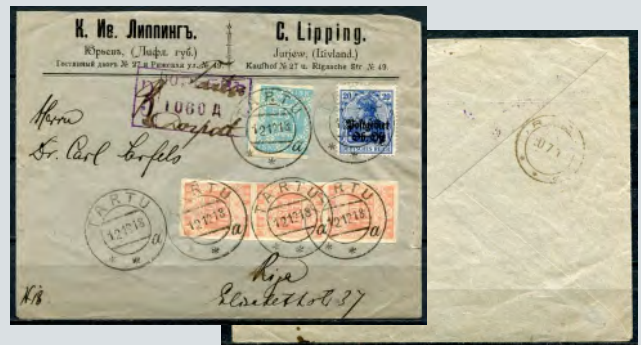 К. Ив. Липпингъ.
Юрьевъ, (Лифл. губ.)
Гостинный дворъ № 27 и Рижская ул. № 49.
C. Lipping.
Jurjew, (Livland.)
Kaufhof № 27 u. Rigasche Str № 49.
1060 A
Dorpat
Herrn
Dr. Carl
TARTU
121218
a
20 20
Postgebiet
Ob. Ost
TARTU
121218
a
TARTU
121218
a
TARTU
121218
a
TARTU
121218
a
Riga
37